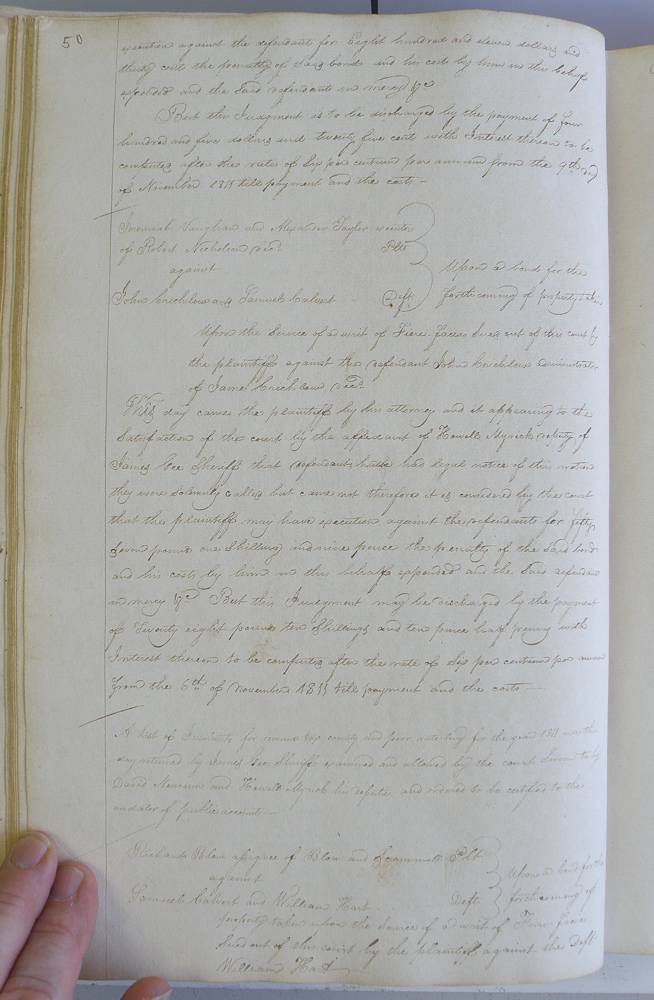 50
execution against the defendant for Eight hundred and eleven dollars and
thirty cents the penalty of said bond and his costs by him in this behalf
expended and the said defendants in mercy &c
But this Judgment is to be discharged by the payment of four
hundred and five dollars and twenty five cents with Interest thereon to be
computed after the rate of Six per centum per annum from the 9th day
of November 1811 till payment and the costs —
Jeremiah Vaughan and Alexander Taylor executors
of Robert Nicholson decd Plts
against Upon a bond for the
John Crichlow and Samuel Calvert Defts forthcoming of property taken
Upon the Service of a writ of Fiere facias Sued out of this court by
the plaintiffs against the defendant John Crichlow administrator
of James Crichlow decd
This day came the plaintiffs by his attorney and it appearing to the
Satisfaction of the court by the affidavit of Howell Myrick deputy of
James Gee Sheriff that defendants had legal notice of this motion
they were solemnly called but came not therefore it is considered by the court
that the plaintiff may have execution against the defendants for fifty
Seven pounds one Shilling and nine pence the penalty of the said bond
and his costs by him in this behalf expended and the said defendants
in mercy &c But this Judgment may be discharged by the payment
of Twenty eight pounds ten Shillings and ten pence half penny with
Interest thereon to be computed after the rate of Six per centum per annum
from the 6th of November 1811 till payment and the costs —
A list of Insolvents for revenue tax county and poor rate levy for the year 1811 was this
day returned by James Gee Sheriff examined and allowed by the court Sworn to by
David and Howell Myrick his deputies and ordered to be certified to the
auditor of public accounts —
Richard Blow assignee of Blow and Scammell Plt
against Upon a bond for the
Samuel Calvert and William Hart Defts forthcoming of
property taken upon the Service of a writ of Fiere facias
Sued out of this court by the plaintiff against the Deft
William Hart —